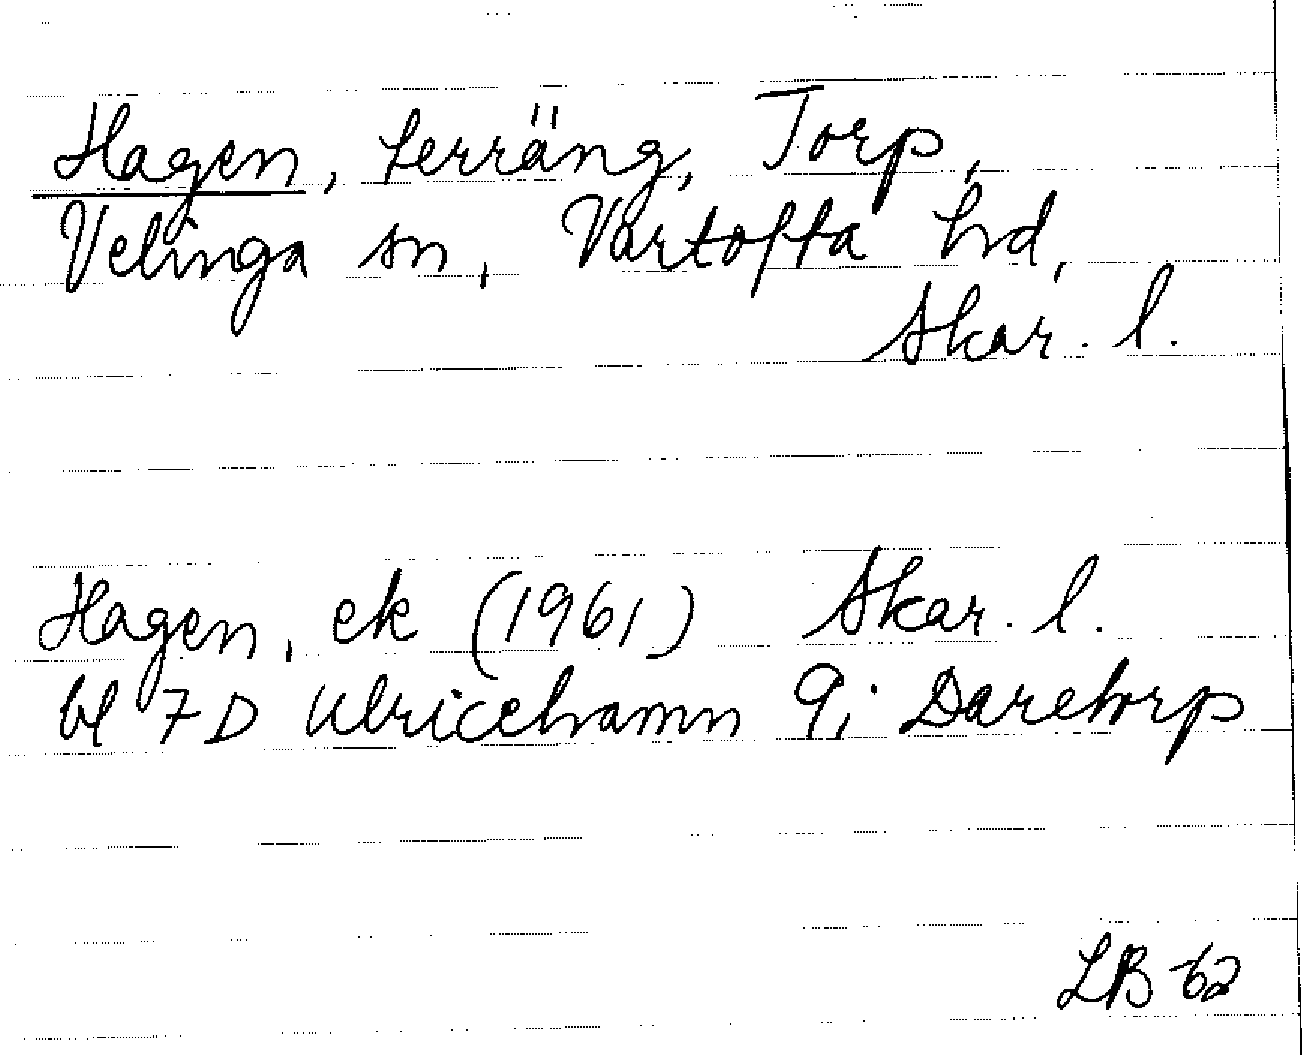 Hagen, terräng, Torp,
Velinga sn, Vartofta hd,
Skar. l.
Hagen, ek (1961) Skar. l.
bl 7D Ulricehamn 9i Daretorp
LB -62